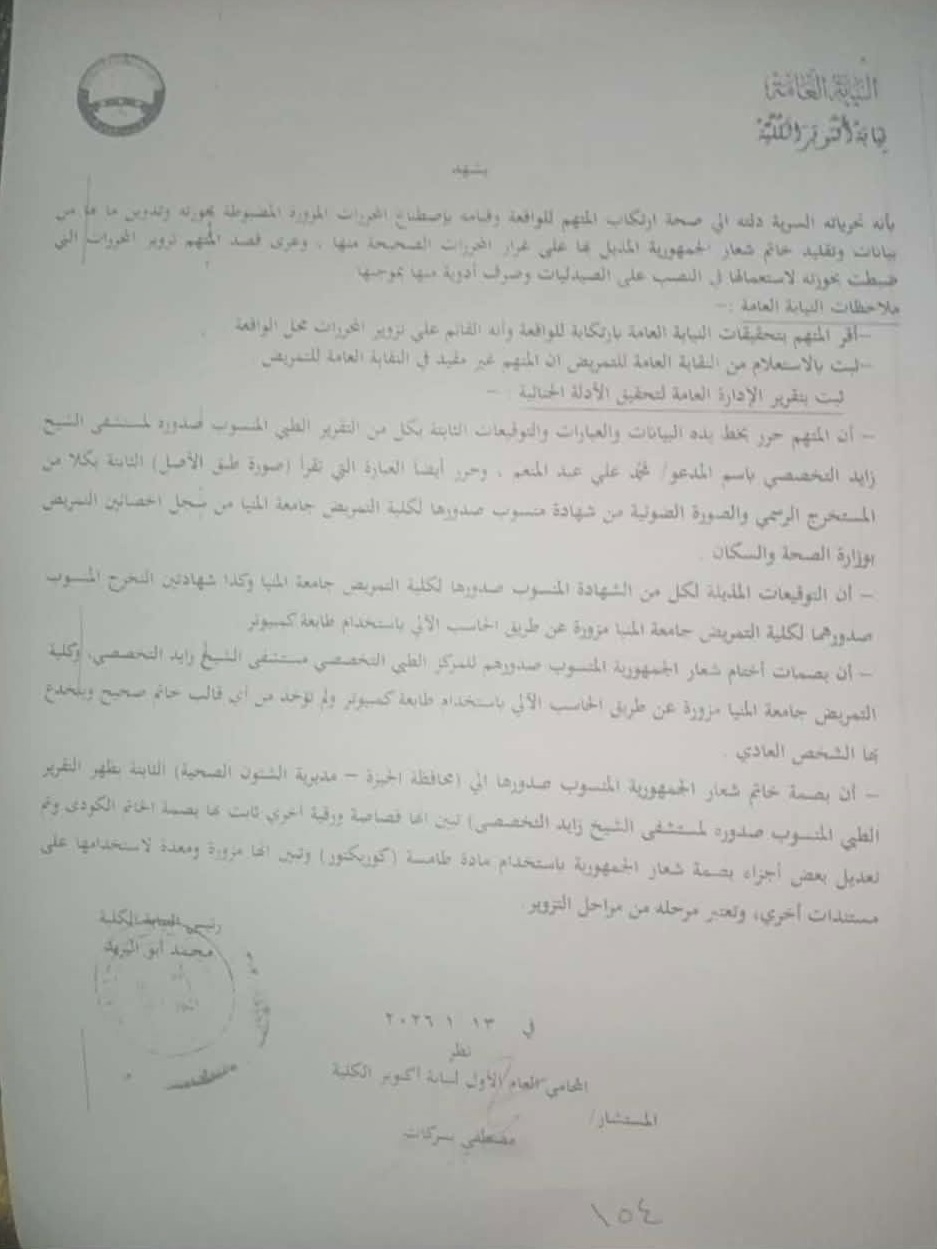 النيابة العامة
نيابة أكتوبر الكلية
يشهد
بأنه تحرياته السرية دلته الي صحة ارتكاب المتهم للواقعة وقيامه بإصطناع المحررات المزورة المضبوطة بحوزته وتدوين ما بها من
بيانات وتقليد خاتم شعار الجمهورية المذيل بها على غرار المحررات الصحيحة منها ، وعزى قصد المتهم تزوير المحررات التي
ضبطت بحوزته لاستعمالها في النصب على الصيدليات وصرف أدوية منها بموجبها
ملاحظات النيابة العامة :–
–أقر المتهم بتحقيقات النيابة العامة بإرتكابة للواقعة وأنه القائم علي تزوير المحررات محل الواقعة
–ثبت بالاستعلام من النقابة العامة للتمريض ان المتهم غير مقيد في النقابة العامة للتمريض
ثبت بتقرير الإدارة العامة لتحقيق الأدلة الجنائية : –
– أن المتهم حرر بخط يده البيانات والعبارات والتوقيعات الثابتة بكل من التقرير الطبي المنسوب صدوره لمستشفى الشيخ
زايد التخصصي باسم المدعو/ محمد علي عبد المنعم ، وحرر أيضاً العبارة التي تقرأ (صورة طبق الأصل) الثابتة بكلا من
المستخرج الرسمي والصورة الضوئية من شهادة منسوب صدورها لكلية التمريض جامعة المنيا من سجل اخصائين التمريض
بوزارة الصحة والسكان .
– أن التوقيعات المذيلة لكل من الشهادة المنسوب صدورها لكلية التمريض جامعة المنيا وكذا شهادتين التخرج المنسوب
صدورهما لكلية التمريض جامعة المنيا مزورة عن طريق الحاسب الآلي باستخدام طابعة كمبيوتر
– أن بصمات أختام شعار الجمهورية المنسوب صدورهم للمركز الطبي التخصصي مستشفى الشيخ زايد التخصصي، وكلية
التمريض جامعة المنيا مزورة عن طريق الحاسب الآلي باستخدام طابعة كمبيوتر ولم تؤخذ من أي قالب خاتم صحيح وينخدع
بها الشخص العادي .
– أن بصمة خاتم شعار الجمهورية المنسوب صدورها الي (محافظة الجيزة – مديرية الشئون الصحية) الثابتة بظهر التقرير
الطبي المنسوب صدوره لمستشفى الشيخ زايد التخصصي) تبين انها قصاصة ورقية اخري ثابت بها بصمة الخاتم الكودى وتم
تعديل بعض أجزاء بصمة شعار الجمهورية باستخدام مادة طامسة (كوريكتور) وتبين انها مزورة ومعدة لاستخدامها على
مستندات أخري، وتعتبر مرحله من مراحل التزوير.
رئيس النيابة الكلية
محمد أبو اليزيد
في ١٣ ١ ٢٠٢٦
نظر
المحامي العام الأول لنيابة أكتوبر الكلية
المستشار/
مصطفي بركات
١٥٤